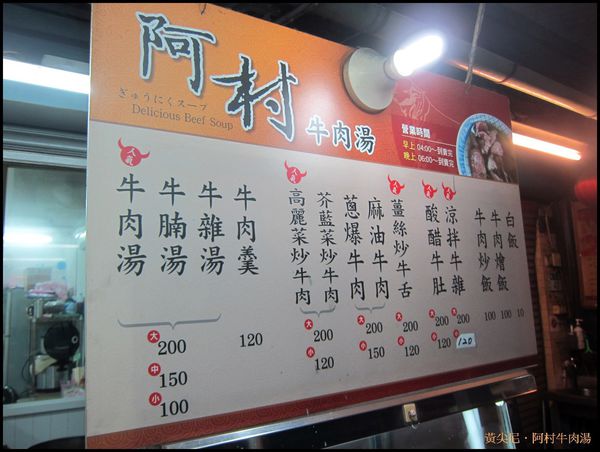 阿村
牛肉湯
ぎゅうにくスープ
Delicious Beef Soup
營業時間
早上 04:00～到賣完
晚上 06:00～到賣完
人氣
牛肉湯
牛腩湯
牛雜湯
大 200
中 150
小 100
牛肉羹
120
人氣
高麗菜炒牛肉
芥藍菜炒牛肉
大 200
小 120
蔥爆牛肉
麻油牛肉
大 200
小 150
人氣
薑絲炒牛舌
大 200
小 120
人氣
酸醋牛肚
大 200
小 120
人氣
涼拌牛雜
大 200
小 120
牛肉炒飯
100
牛肉燴飯
100
白飯
10
黃尖尼・阿村牛肉湯